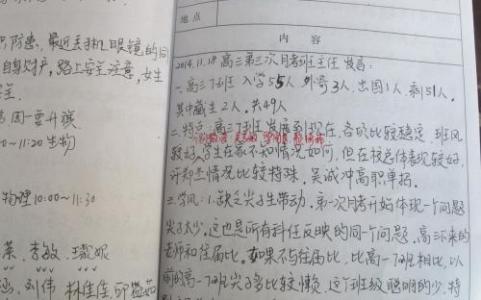 识,防患、最近丢手机、眼镜的同
自身财产,路上安全注意,女生
全.
周一要升旗.
0~11:20 生物
物理10:00~11:30
李敏
刘伟 林佳佳
地点
内 容
2014.11.18 高三第三次月考班主任 发言:
一.高三7班 入学55人 外寄3人,出国1人,剩51人,
其中藏生2人,共49人
二.特点:高三7班发展到现在,各的比较稳定,班风
较好,学生在家不知情况如何,但在校总体表现较好,
情况比较特殊,吴诚冲高职单招.
三.学风:1.缺乏尖子生带动,第一次月考开始体现一个问题
尖子太少.这也是所有科任反映的同一个问题,高三下来的
老师和往届比,如果不与往届比,比高一7班相比,以
前的高一7班尖子多比较懒,这个班级聪明的少,特